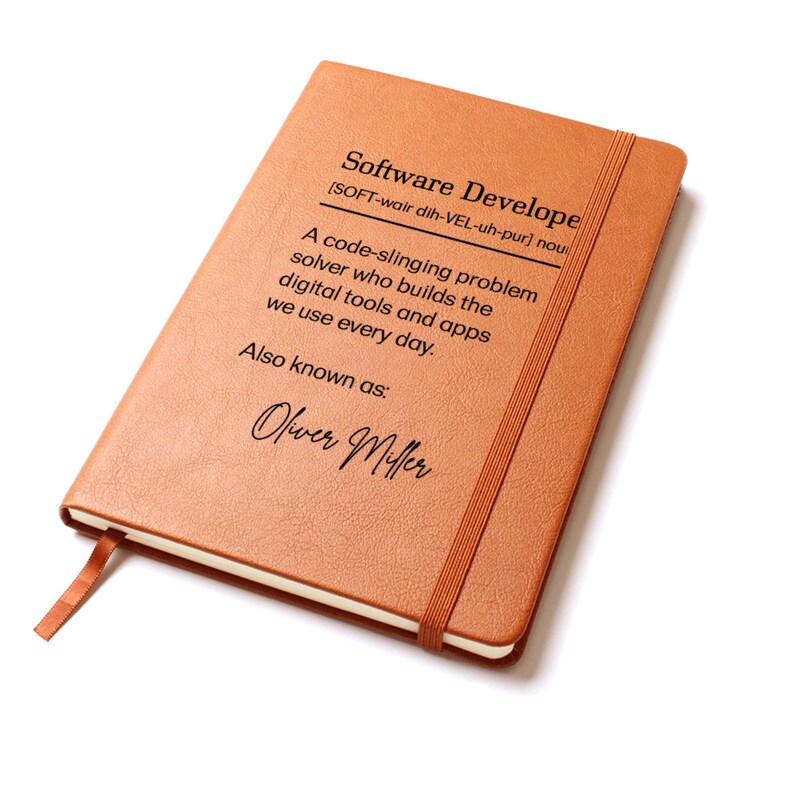 Software Develope
[SOFT-wair dih-VEL-uh-pur] nou
A code-slinging problem
solver who builds the
digital tools and apps
we use every day.
Also known as:
Oliver Miller